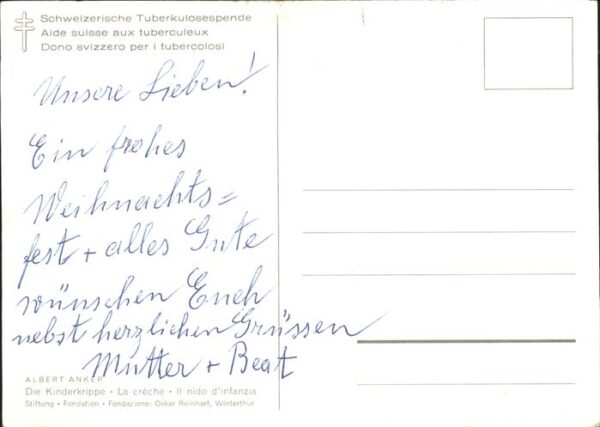 Schweizerische Tuberkulosespende
Aide suisse aux tuberculeux
Dono svizzero per i tubercolosi
Unsere Lieben!
Ein frohes
Weihnachts=
fest + alles Gute
wünschen Euch
nebst herzlichen Grüssen
Mutter + Beat
ALBERT ANKER
Die Kinderkrippe · La crèche · Il nido d'infanzia
Stiftung · Fondation · Fondazione: Oskar Reinhart, Winterthur